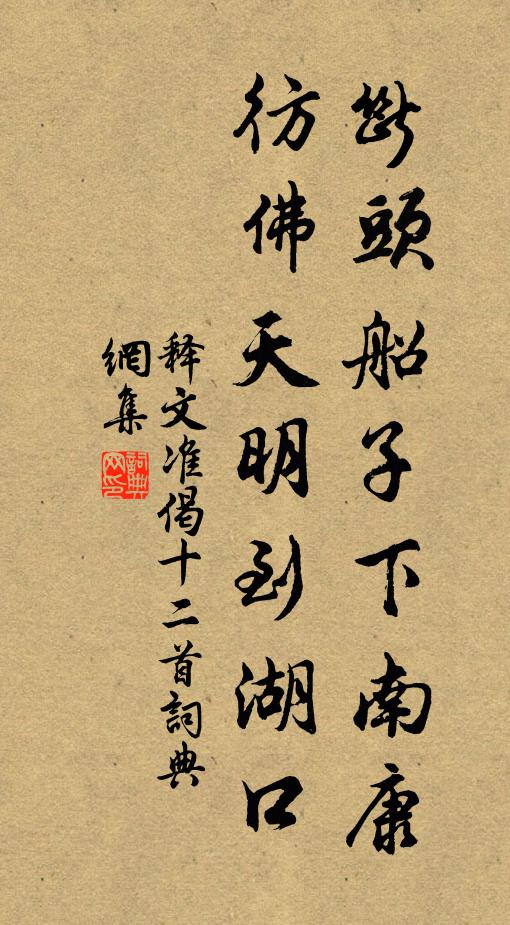 斷頭船子下南康
彷佛天明到湖口
释文准偈十二首詞典
網集
詞典
网印